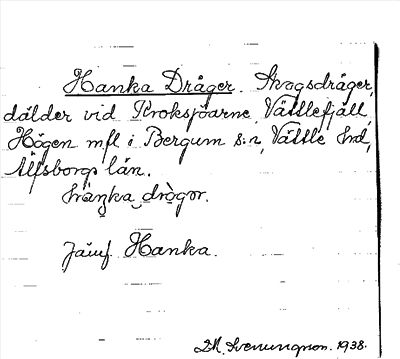 Hanka Dråger. Skogsdråger,
dälder vid Kroksjöarne, Vättlefjäll,
Högen m fl i Bergum s:n, Vättle hd,
Älfsborgs län.
hàŋka drògər.
Jämf. Hanka.
Svenungson. 1938.